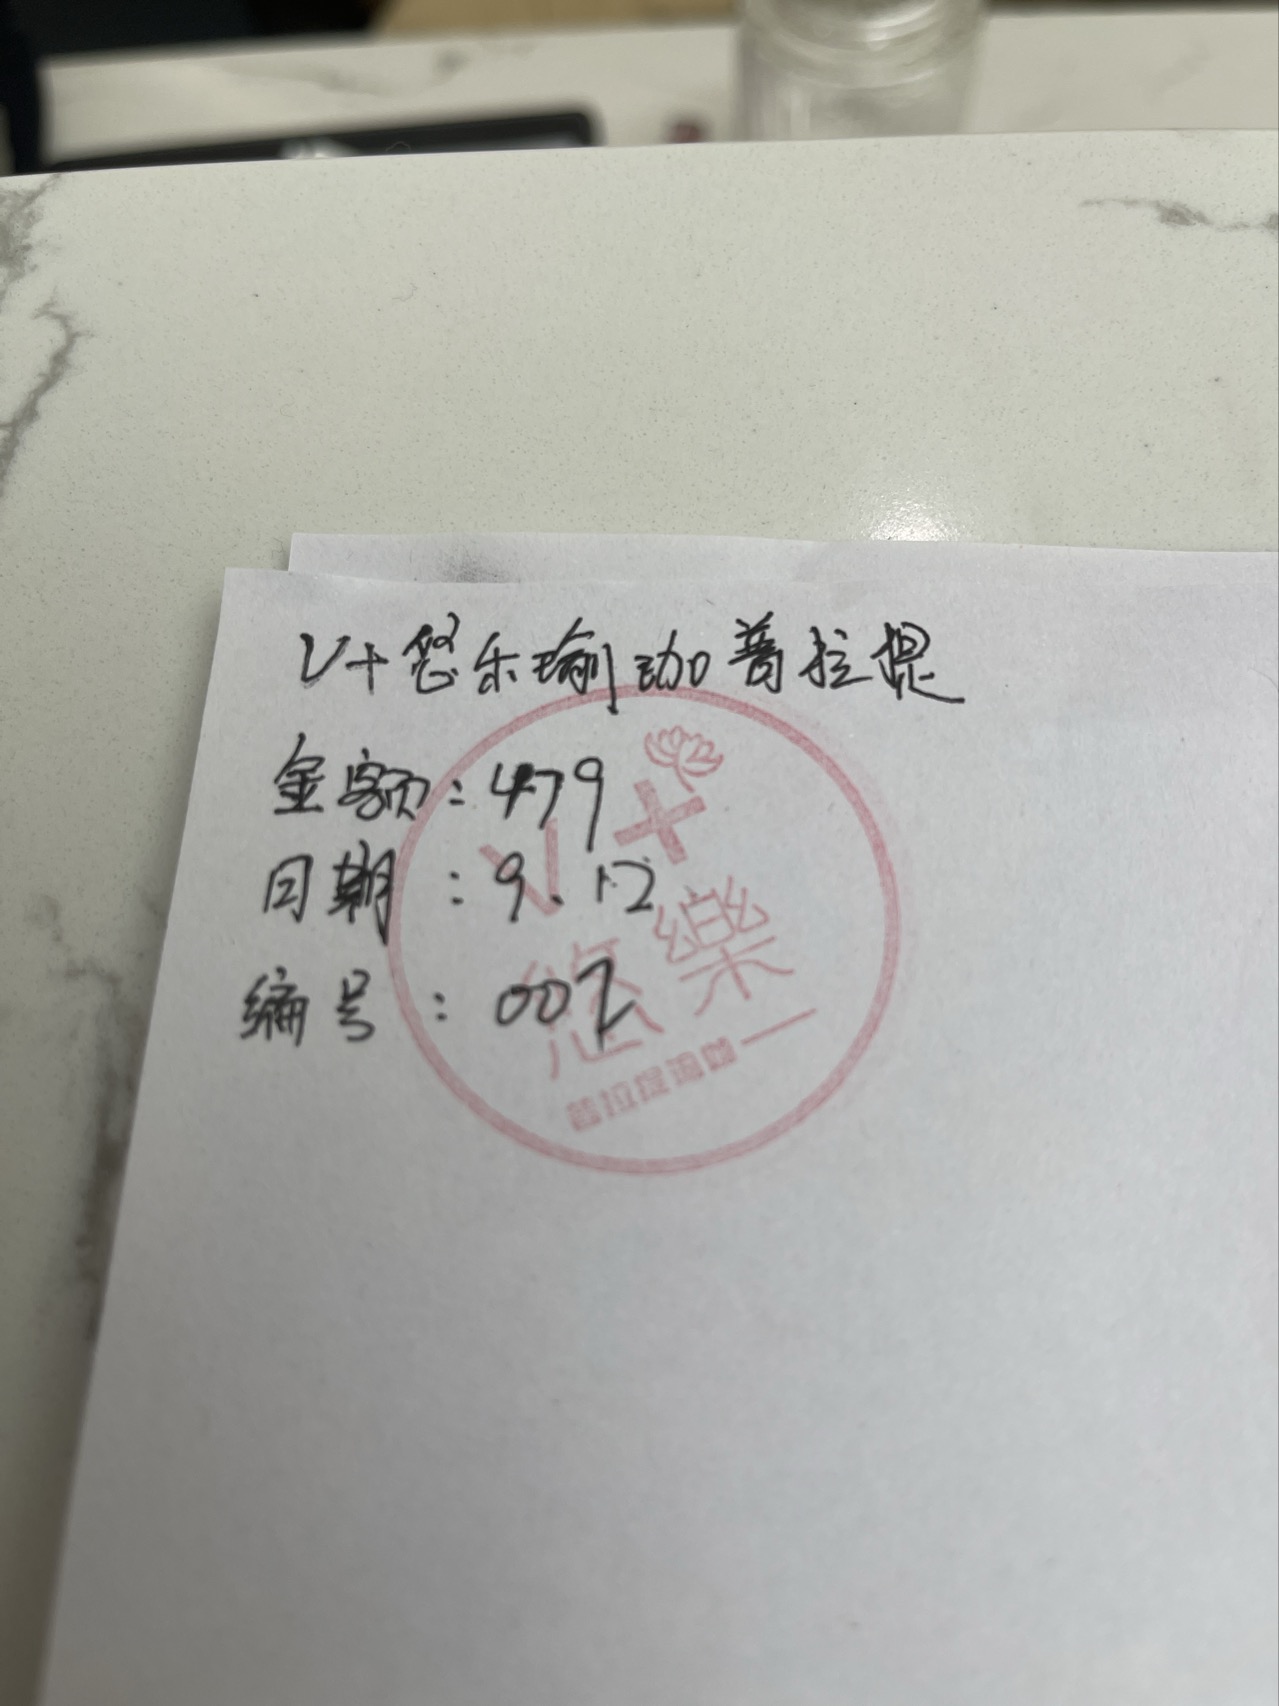 V+悠乐瑜珈普拉提
金额：479
日期：9.12
编号：002
V+
悠樂
普拉提瑜伽